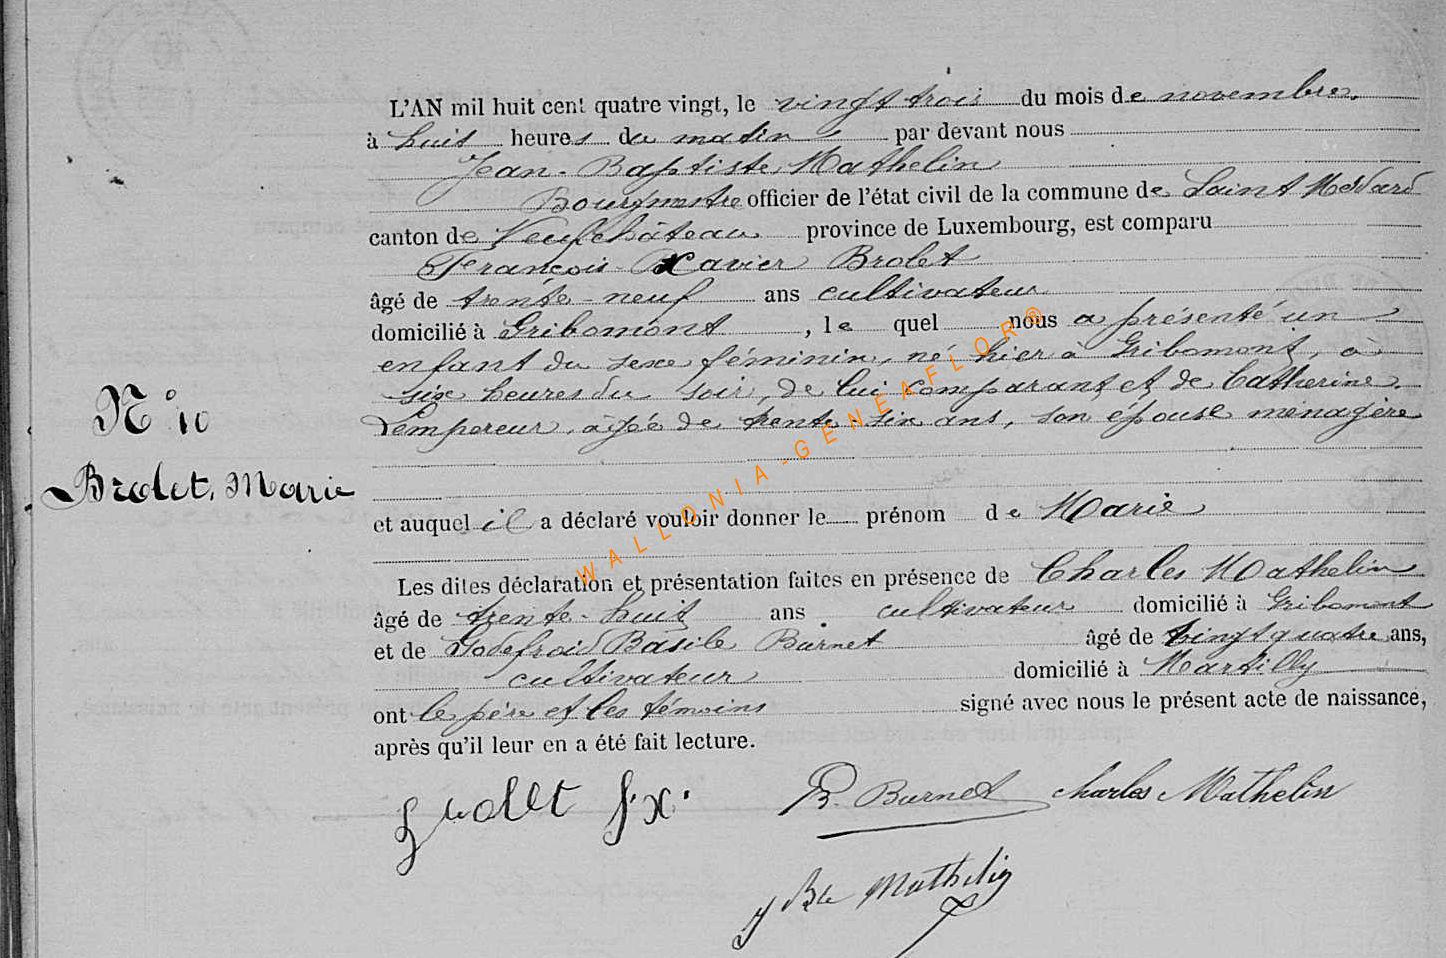 L'AN mil huit cent quatre vingt, le vingt trois du mois de novembre,
à huit heures du matin par devant nous
Jean-Baptiste Mathelin
Bourgmestre officier de l'état civil de la commune de Saint Médard
canton de Neufchâteau province de Luxembourg, est comparu
François-Xavier Brolet
âgé de trente-neuf ans cultivateur
domicilié à Gribomont, le quel nous a présenté un
enfant du sexe féminin, né hier à Gribomont, à
six heures du soir, de lui comparant et de Catherine
Lempereur, âgée de trente six ans, son épouse ménagère
N° 10
Brolet, Marie
et auquel il a déclaré vouloir donner le prénom de Marie
Les dites déclaration et présentation faites en présence de Charles Mathelin
âgé de trente-huit ans cultivateur domicilié à Gribomont
et de Godefroid Basile Burnet âgé de vingt quatre ans,
cultivateur domicilié à Martilly
ont le père et les témoins signé avec nous le présent acte de naissance,
après qu'il leur en a été fait lecture.
brolet f.x. B. Burnet Charles Mathelin
J Bte Mathelin
WALLONIA-GENEAFLOR®